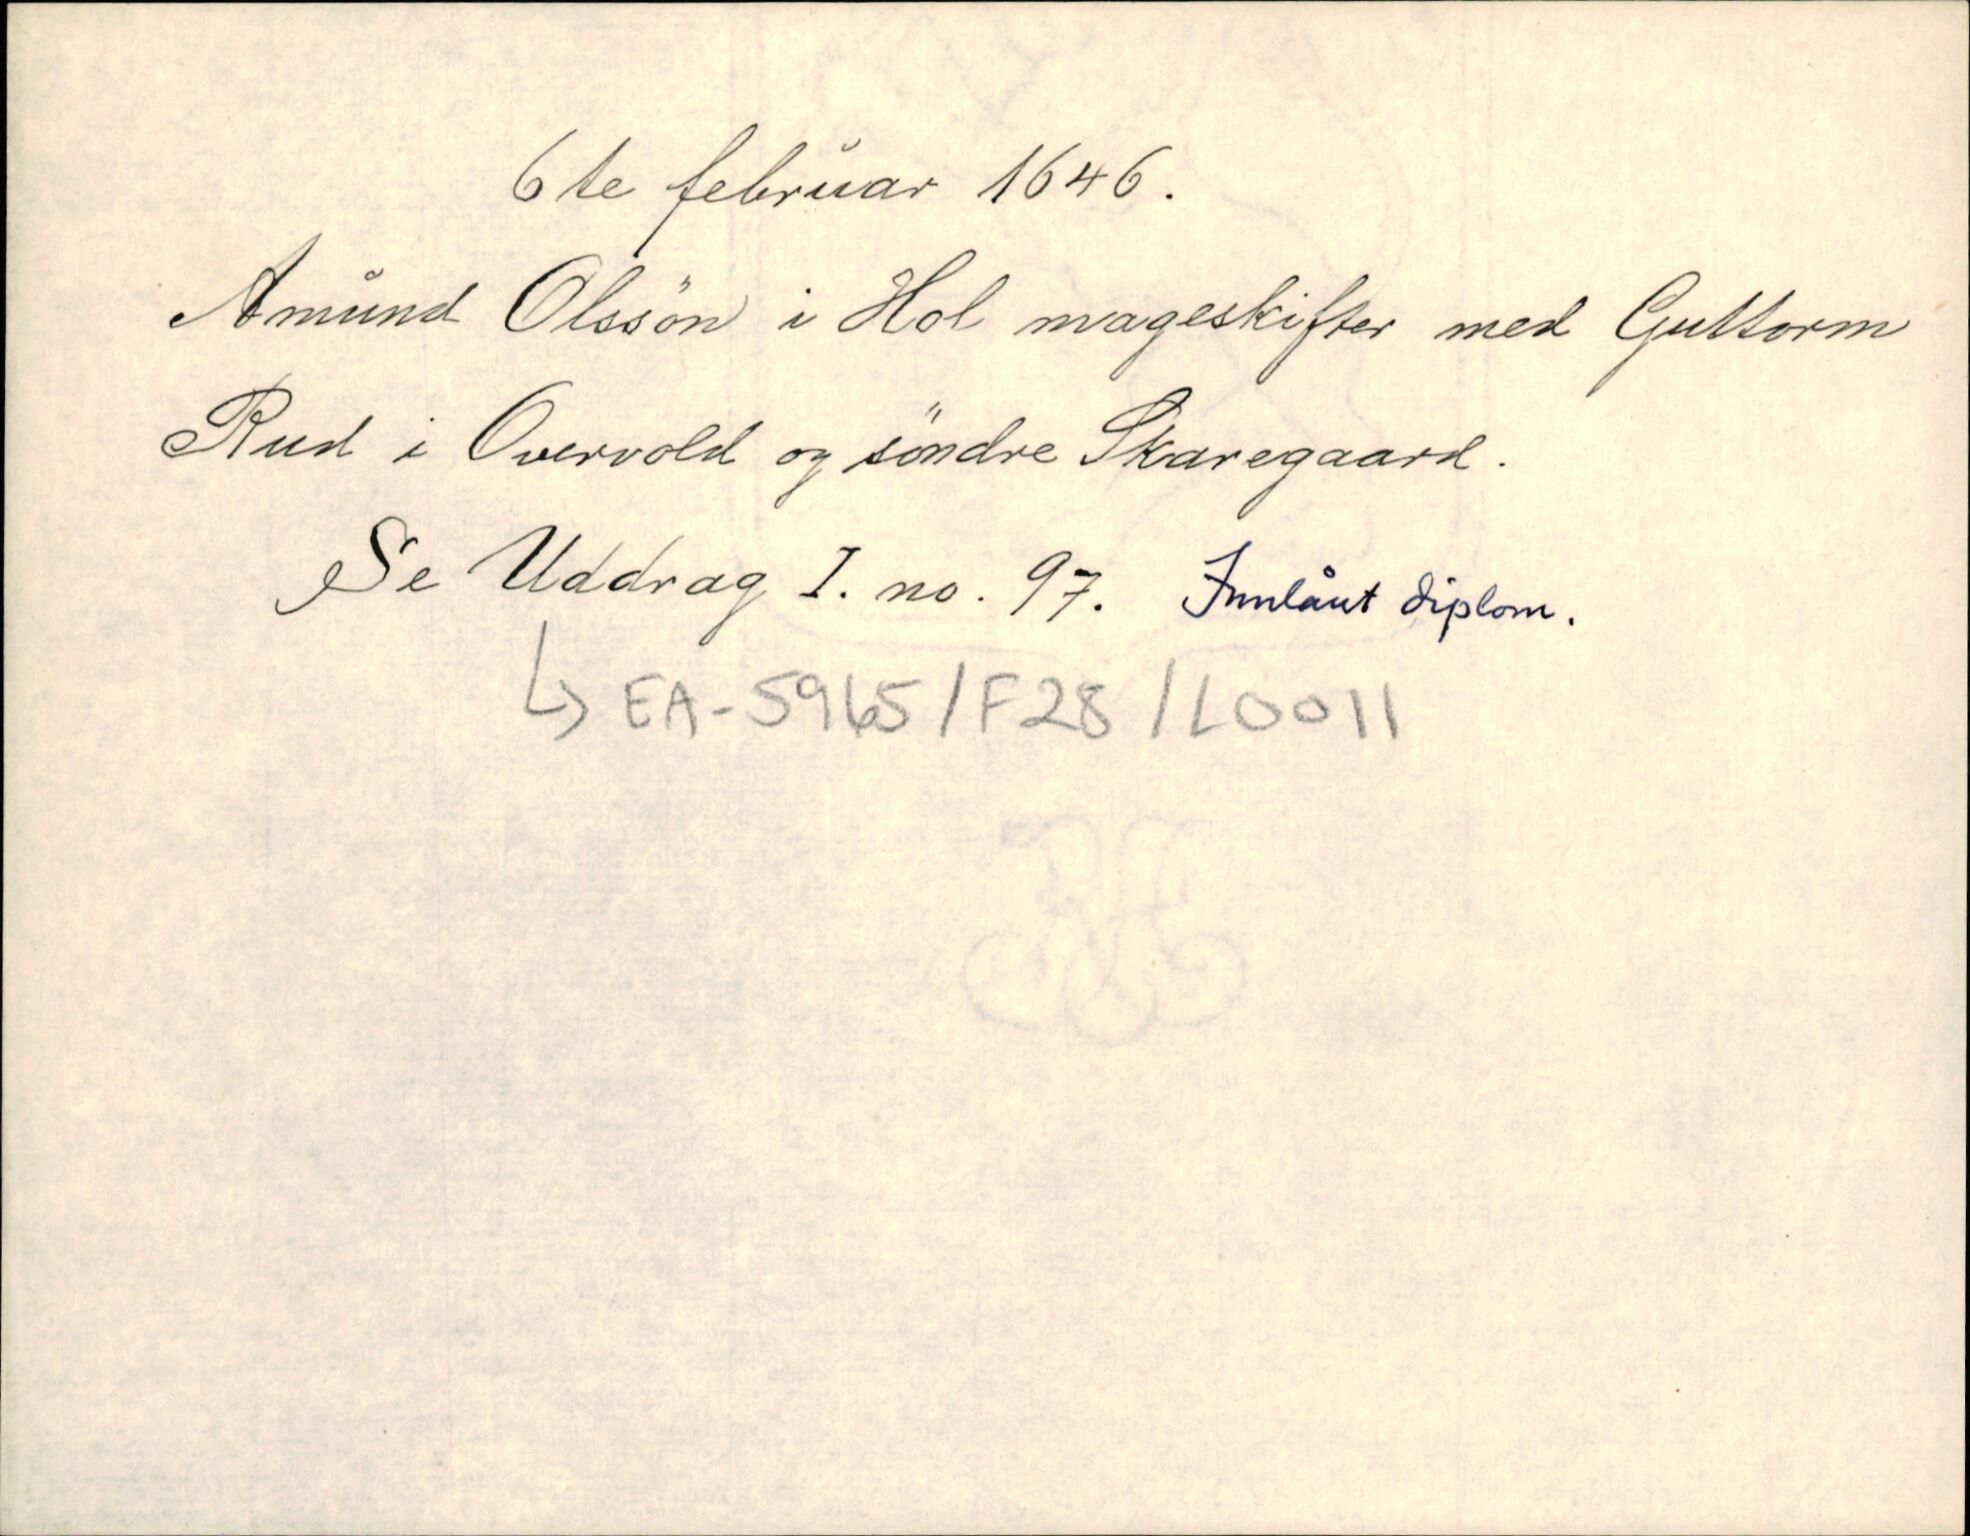 6te februar 1646.
Amund Olssön i Hol mageskifter med Guttorm
Rud i Overvold og söndre Skaregaard.
Se Uddrag I. no. 97. Innlånt diplom.
↳ EA-5965/F28/L0011